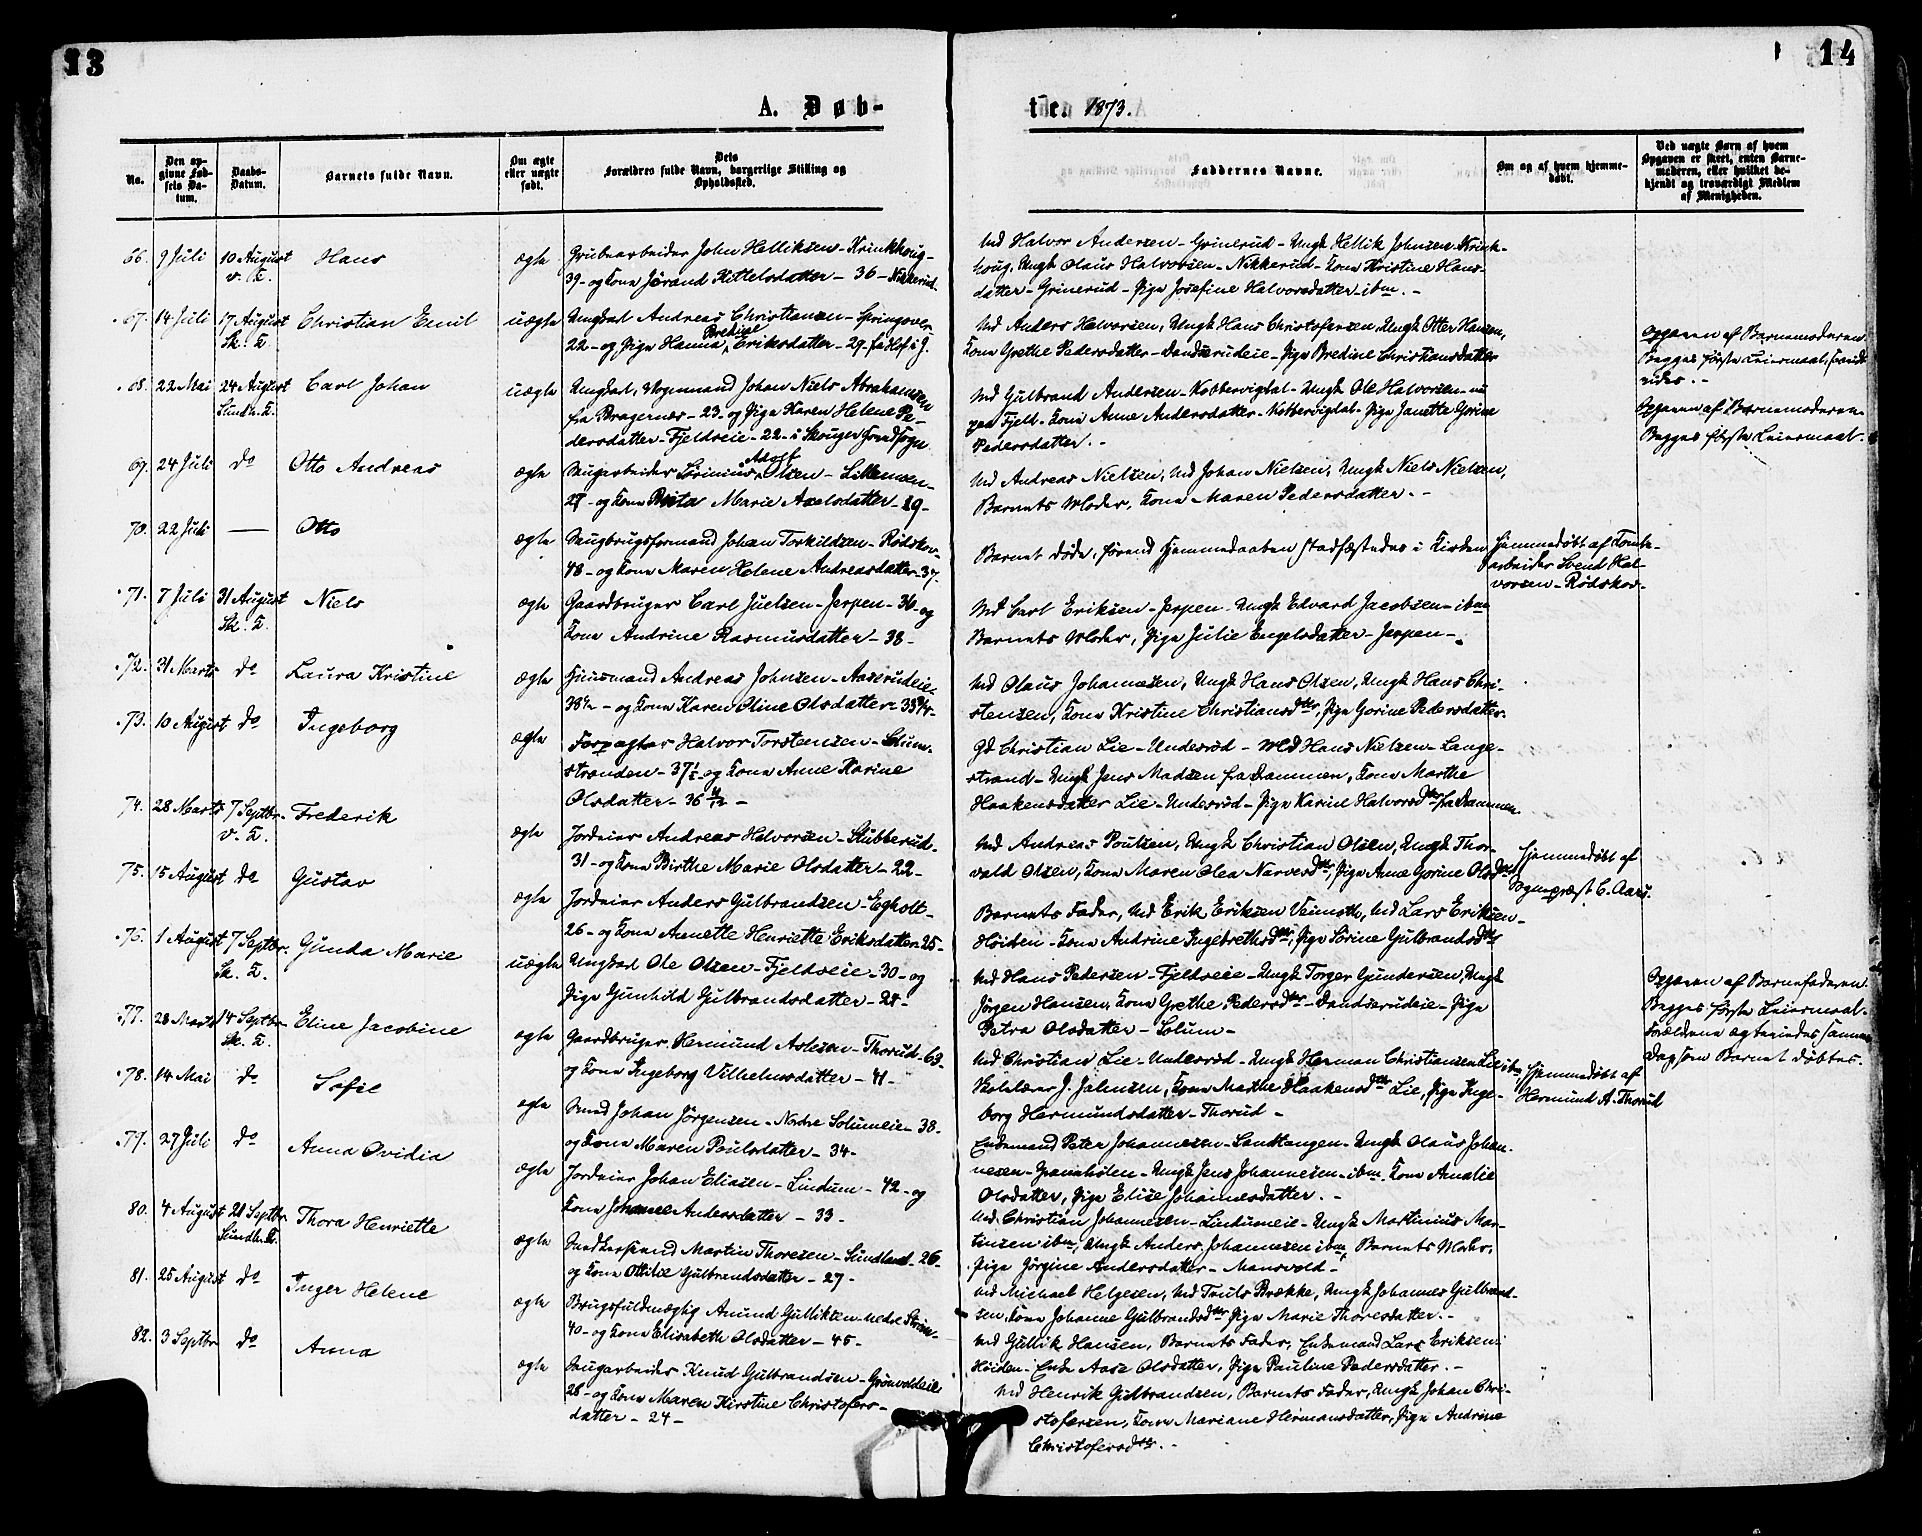 13
14
A. Døb-
te. 1873.
No.
Den op-
givne Fød-
sels Da-
tum.
Daabs-
Datum.
Barnets fulde Navn.
Om ægte
eller uægte
født.
Dets
Forældres fulde Navn, borgerlige Stilling og
Opholdssted.
Faddernes Navne.
Om og af hvem hjemme-
døbt.
Ved uægte Børn af hvem
Opgaven er skeet, enten Barne-
moderen, eller hvilket be-
kjendt og troværdigt Medlem
af Menigheden.
66. 9 Juli 10 August Hans ægte Grubearbeider John Helliksen - Krinkhoug -
v. K.
39 - og Kone Jørand Kittelsdatter - 36 - Nikkerud.
Md Halvor Andersen - Grinerud - Ungk Hellik Johnsen Krink-
houg, Ungk Olaus Halvorsen - Nikkerud - Kone Kristine Hans-
datter - Grinerud - Pige Josefine Halvorsdatter - ibm. -
67. 14 Juli 17 August Christian Emil uægte Ungkarl Andreas Christiansen - Springover
Sk. K.
22 - og Pige Hanna Bredine Eriksdatter - 29.
Md Anders Halvorsen, Ungk Hans Christofersen, Ungk Otter Hansen,
Kone Grethe Pedersdatter - Dandserudeie - Pige Bredine Christiansdatter
Opgaven af Barnemoderen
Begges første Leiermaal
68. 22 Mai 24 August Carl Johan uægte Ungkarl, Vognmand Johan Niels Abrahamsen
fra Bragernes - 23. og Pige Karen Helene Pe-
dersdatter - Fjeldseie - 22 - i Skouger Hovedsogn
Md Gulbrand Andersen - Kobbervigdal - Ungk Ole Halvorsen -
Fjeld - Kone Anne Andersdatter - Kobbervigdal - Pige Janette Gorine
Pedersdatter. -
Opgaven af Barnemoderen -
Begges første Leiermaal -
69. 24 Juli do Otto Andreas ægte Adolf Olsen -
og Kone Marie Axelsdatter - 29 -
Md Andreas Nielsen, Md Johan Nielsen, Ungk Niels Nielsen,
Barnets Moder, Kone Maren Pedersdatter. -
70. 22 Juli — Otto ægte Saugbrugsformand Johan Torkildsen - Rødskov
48 - og Kone Maren Helene Andreasdatter - 37.
Barnet døde, førend Hjemmedaaben stadfæstedes i Kirken
Hjemmedøbt af Tomte-
arbeider Svend Hal-
vorsen - Rødskov.
71. 7 Juli 31 August Niels ægte Gaardbruger Carl Juelsen - Jerpen - 36 - og
Sk. K.
Kone Andrine Rasmusdatter - 38 -
Md Carl Eriksen - Jerpen - Ungk Edvard Jacobsen - ibm
Barnets Moder, Pige Julie Engelsdatter - Jerpen -
72. 31 Marts do Laura Kristine ægte Huusmand Andreas Johnsen - Aaserudeie
38½ - og Kone Karen Oline Olsdatter
Md Olaus Johannesen, Ungk Hans Olsen, Ungk Hans Chri-
stensen, Kone Kristine Christiansdtr, Pige Gorine Pedersdatter.
73. 10 August do Ingeborg ægte Forpagter Halvor Torstensen - Solum-
stranden - 37½ - og Kone Anne Karine
Olsdatter - 36
Gd Christian Lie - Underød - Md Hans Nielsen - Lange-
strand - Ungk Jens Madsen fra Dammen, Kone Marthe
Haakensdatter Lie - Underød - Pige Karine Halvorsdtr fra Dammen.
74. 28 Marts 7 Septbr. Frederik ægte Jordeier Andreas Halvorsen - Stubberud -
v. K.
31 - og Kone Birthe Marie Olsdatter - 22 -
Md Andreas Poulsen, Ungk Christian Olsen, Ungk Thor-
vald Olsen, Kone Maren Olea Narvesdtr, Pige Anne Gorine Olsdtr
Hjemmedøbt af
Sognepræst C. Aars.
75. 15 August do Gustav ægte Jordeier Anders Gulbrandsen - Egholt -
26 - og Kone Anette Henriette Eriksdatter 25 -
Barnets Fader, Md Erik Eriksen Veimoth, Md Lars Eriksen -
Høiden - Kone Andrine Ingebretsdtr, Pige Sørine Gulbrandsdtr
76. 1 August 7 Septbr. Gunda Marie uægte Ungkarl Ole Olsen - Fjeldseie - 30 - og
Sk. K.
Pige Gunhild Gulbrandsdatter - 28 -
Md Hans Pedersen - Fjeldseie - Ungk Torger Gundersen, Ungk
Jørgen Hansen, Kone Grethe Pedersdtr - Dandserudeie - Pige
Petra Olsdatter - Solum -
Opgaven af Barnefaderen
Begges første Leiermaal -
Forældrene ægteviedes samme
Dag som Barnet døbtes.
77. 28 Marts 14 Septbr. Eline Jacobine ægte Gaardbruger Hermund Aslesen - Thorud - 63 -
Sk. K.
og Kone Ingeborg Vilhelmsdatter - 41 -
Md Christian Lie - Underød - Ungk Herman Christiansen Lie ibm
Skolelærer J. Jahnsen, Kone Marthe Haakensdtr Lie, Pige Inge-
borg Hermundsdatter - Thorud -
Hjemmedøbt af
Hermund A. Thorud
78. 14 Mai do Sofie ægte Smed Johan Jørgensen - Nordre Solumeie - 38 -
og Kone Maren Poulsdatter - 34 -
Enkemand Peter Johannesen - Sandtangen - Ungk Olaus Johan-
nesen - Ungk Jens Johannesen - ibm. Kone Amalie
Olsdatter, Pige Elise Johannesdatter. -
79. 27 Juli do Anna Ovidia ægte Jordeier Johan Eliasen - Lindum - 42 - og
Kone Johanne Andersdatter - 33 -
Md. Christian Johannesen - Lindumeie - Ungk Martinius Mar-
tinsen ibm, Ungk Anders Johannesen ibm, Barnets Moder,
Pige Jørgine Andersdatter - Mansvold -
80. 4 August 21 Septbr. Thora Henriette ægte Martin Thoresen - Sundland - 26 -
Sundh. K.
og Kone Ottilie Gulbrandsdatter - 27 -
Md Michael Helgesen, Md Truls Brække, Ungk Johannes Gulbrand-
sen, Kone Johanne Gulbrandsdtr Pige Marie Thoresdatter. -
81. 25 August do Inger Helene ægte Brugsfuldmægtig Amund Gulliksen nedre
40 - og Kone Elisabeth Olsdatter - 45 -
Md Gullik Hansen, Barnets Fader, Enkemand Lars Eriksen
Høiden - Enke Aase Olsdatter, Pige Pauline Pedersdatter. -
82. 3 Septbr do Anna ægte Saugarbeider Knud Gulbrandsen - Grønvoldeie
28 - og Kone Maren Kirstine Christofers-
datter - 24 -
Md Henrik Gulbrandsen, Barnets Fader, Ungk Johan Chri-
stofersen, Kone Mariane Hermansdatter, Pige Andrine
Christofersdtr. -